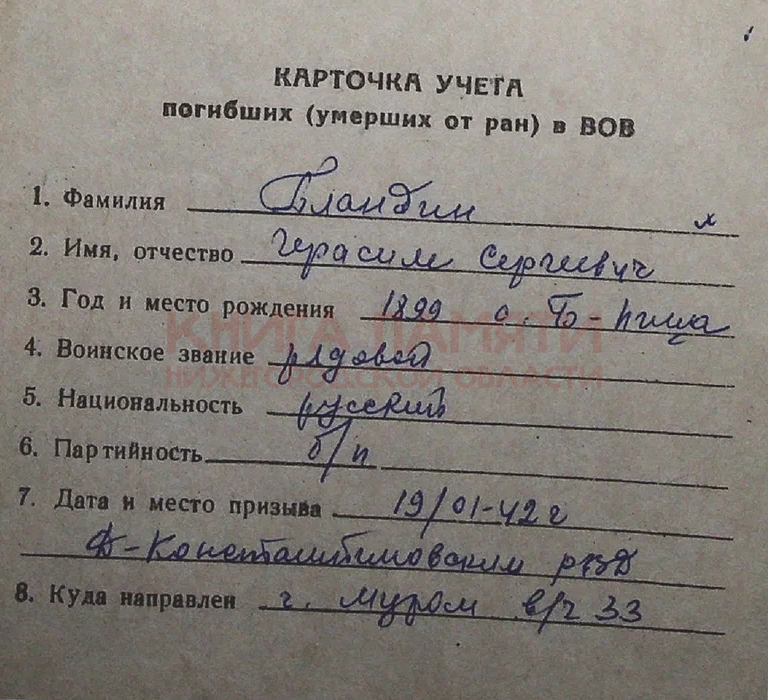 КАРТОЧКА УЧЕТА
погибших (умерших от ран) в ВОВ
1. Фамилия Бландин
2. Имя, отчество Герасим Сергеевич
3. Год и место рождения 1899 с. Б-Пица
КНИГА ПАМЯТИ
4. Воинское звание рядовой
НИЖЕГОРОДСКОЙ ОБЛАСТИ
5. Национальность русский
6. Партийность б/п
7. Дата и место призыва 19/01-42 г
Д-Константиновским РВК
8. Куда направлен г. Муром в/ч 33